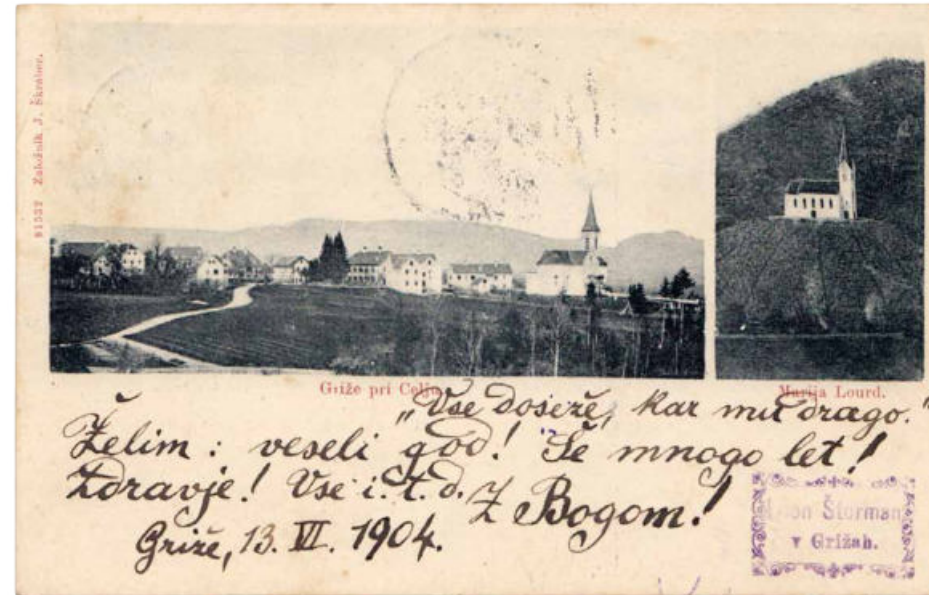 91532 Založnik J. Škrabec.
Griže pri Celju.
Marija Lourd.
"Vse doseže, kar mu drago."
Želim: veseli god! Še mnogo let!
Zdravje! Vse i. t. d. Z Bogom!
Griže, 13. VI. 1904.
Šturman
v Grižah.